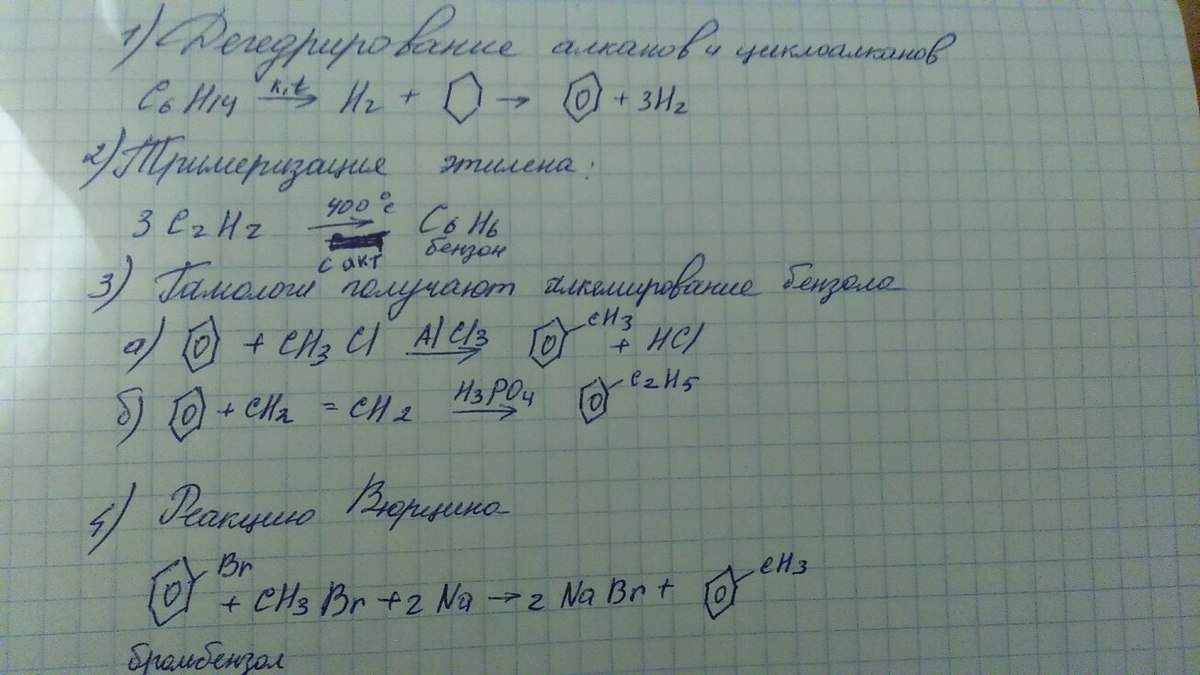 1) Дегедрирование алканов и циклоалканов
C6H14 →(к,t) H2 + ⬡ → ⌬ + 3H2
2) Тримеризация этилена:
3 C2H2 →(400°C, C акт) C6H6
бензон
3) Гамологи получают алкемирование бензола
а) ⌬ + CH3Cl →(AlCl3) ⌬–CH3 + HCl
б) ⌬ + CH2 = CH2 →(H3PO4) ⌬–C2H5
4) Реакцию Вюрцина
⌬–Br + CH3Br + 2Na → 2NaBr + ⌬–CH3
бромбензол